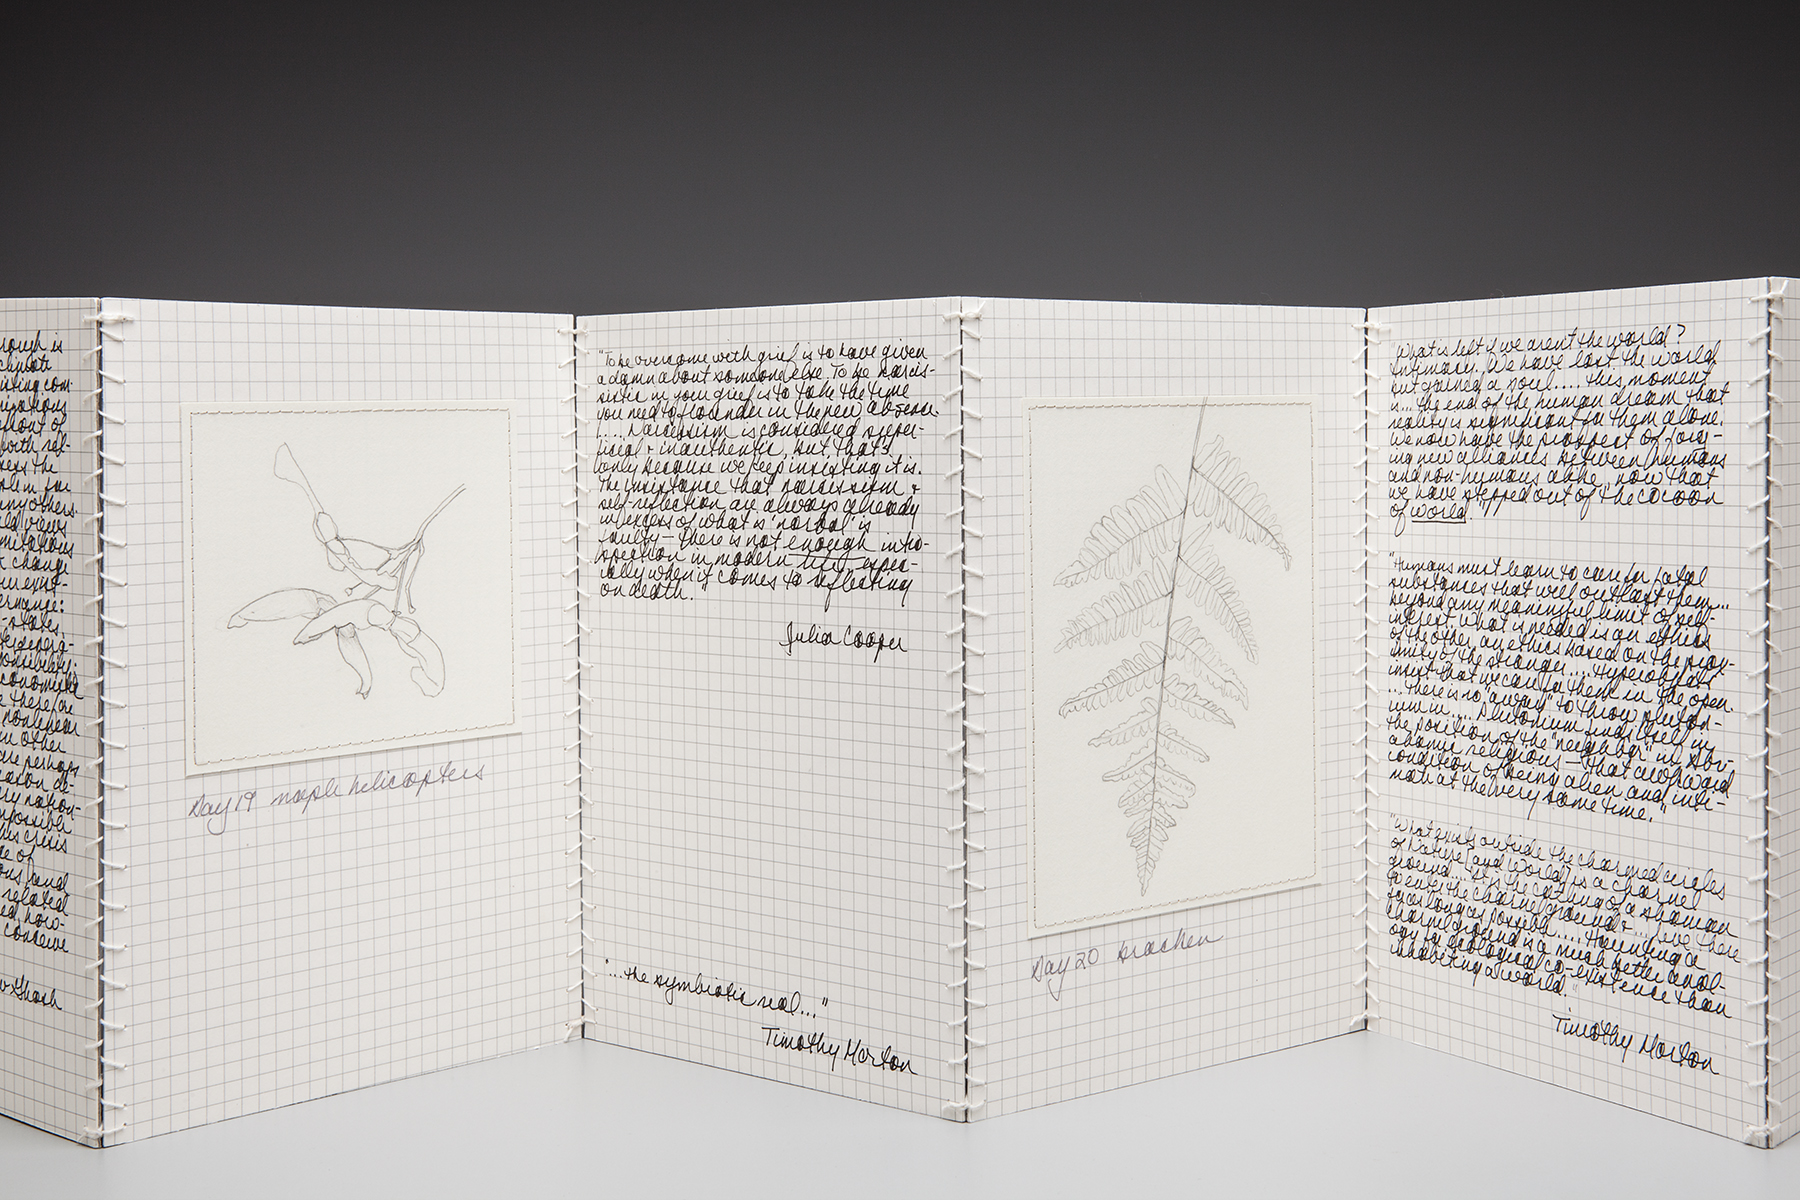 rough is
climate
existing com-
ry nation-
mpossible
his crisis
ce of
ions) and
related
ed, how-
conceive
v Ghosh
Day 19 maple helicopters
"To be overcome with grief is to have given
a damn about someone else. To be narcis-
sistic in your grief is to take the time
you need to flounder in the new absence.
..... Narcissism is considered super-
ficial & inauthentic, but, that's
only because we keep insisting it is.
The insistence that narcissism &
self reflection are always already
in excess of what is 'normal' is
faulty — there is not enough intro-
spection in modern life, espec-
ially when it comes to reflecting
on death."
Julia Cooper
"...the symbiotic real..."
Timothy Morton
Day 20 bracken
"What is left if we aren't the world?
Intimacy. We have lost the world
but gained a soul.... this moment
is... the end of the human dream that
reality is significant for them alone.
We now have the prospect of forg-
ing new alliances between humans
and non-humans alike, now that
we have stepped out of the cocoon
of world."
"Humans must learn to care for fatal
substances that will outlast them...
beyond any meaningful limit of self-
interest. What is needed is an ethics
of the other, an ethics based on the prox-
imity of the stranger.... Hyperobjects
insist that we care for them in the open.
... There is no "away" to throw pluton-
ium in.... Plutonium finds itself in
the position of the "neighbor" in Abr-
ahamic religions — that awkward
condition of being alien and inti-
mate at the very same time."
"What exists outside the charmed circles
of Nature [and World] is a charnel
ground.... It is the calling of a shaman
to enter the charnel ground &... live there
for as long as possible..... Haunting a
charnel ground is a much better anal-
ogy for ecological co-existence than
inhabiting a world."
Timothy Morton